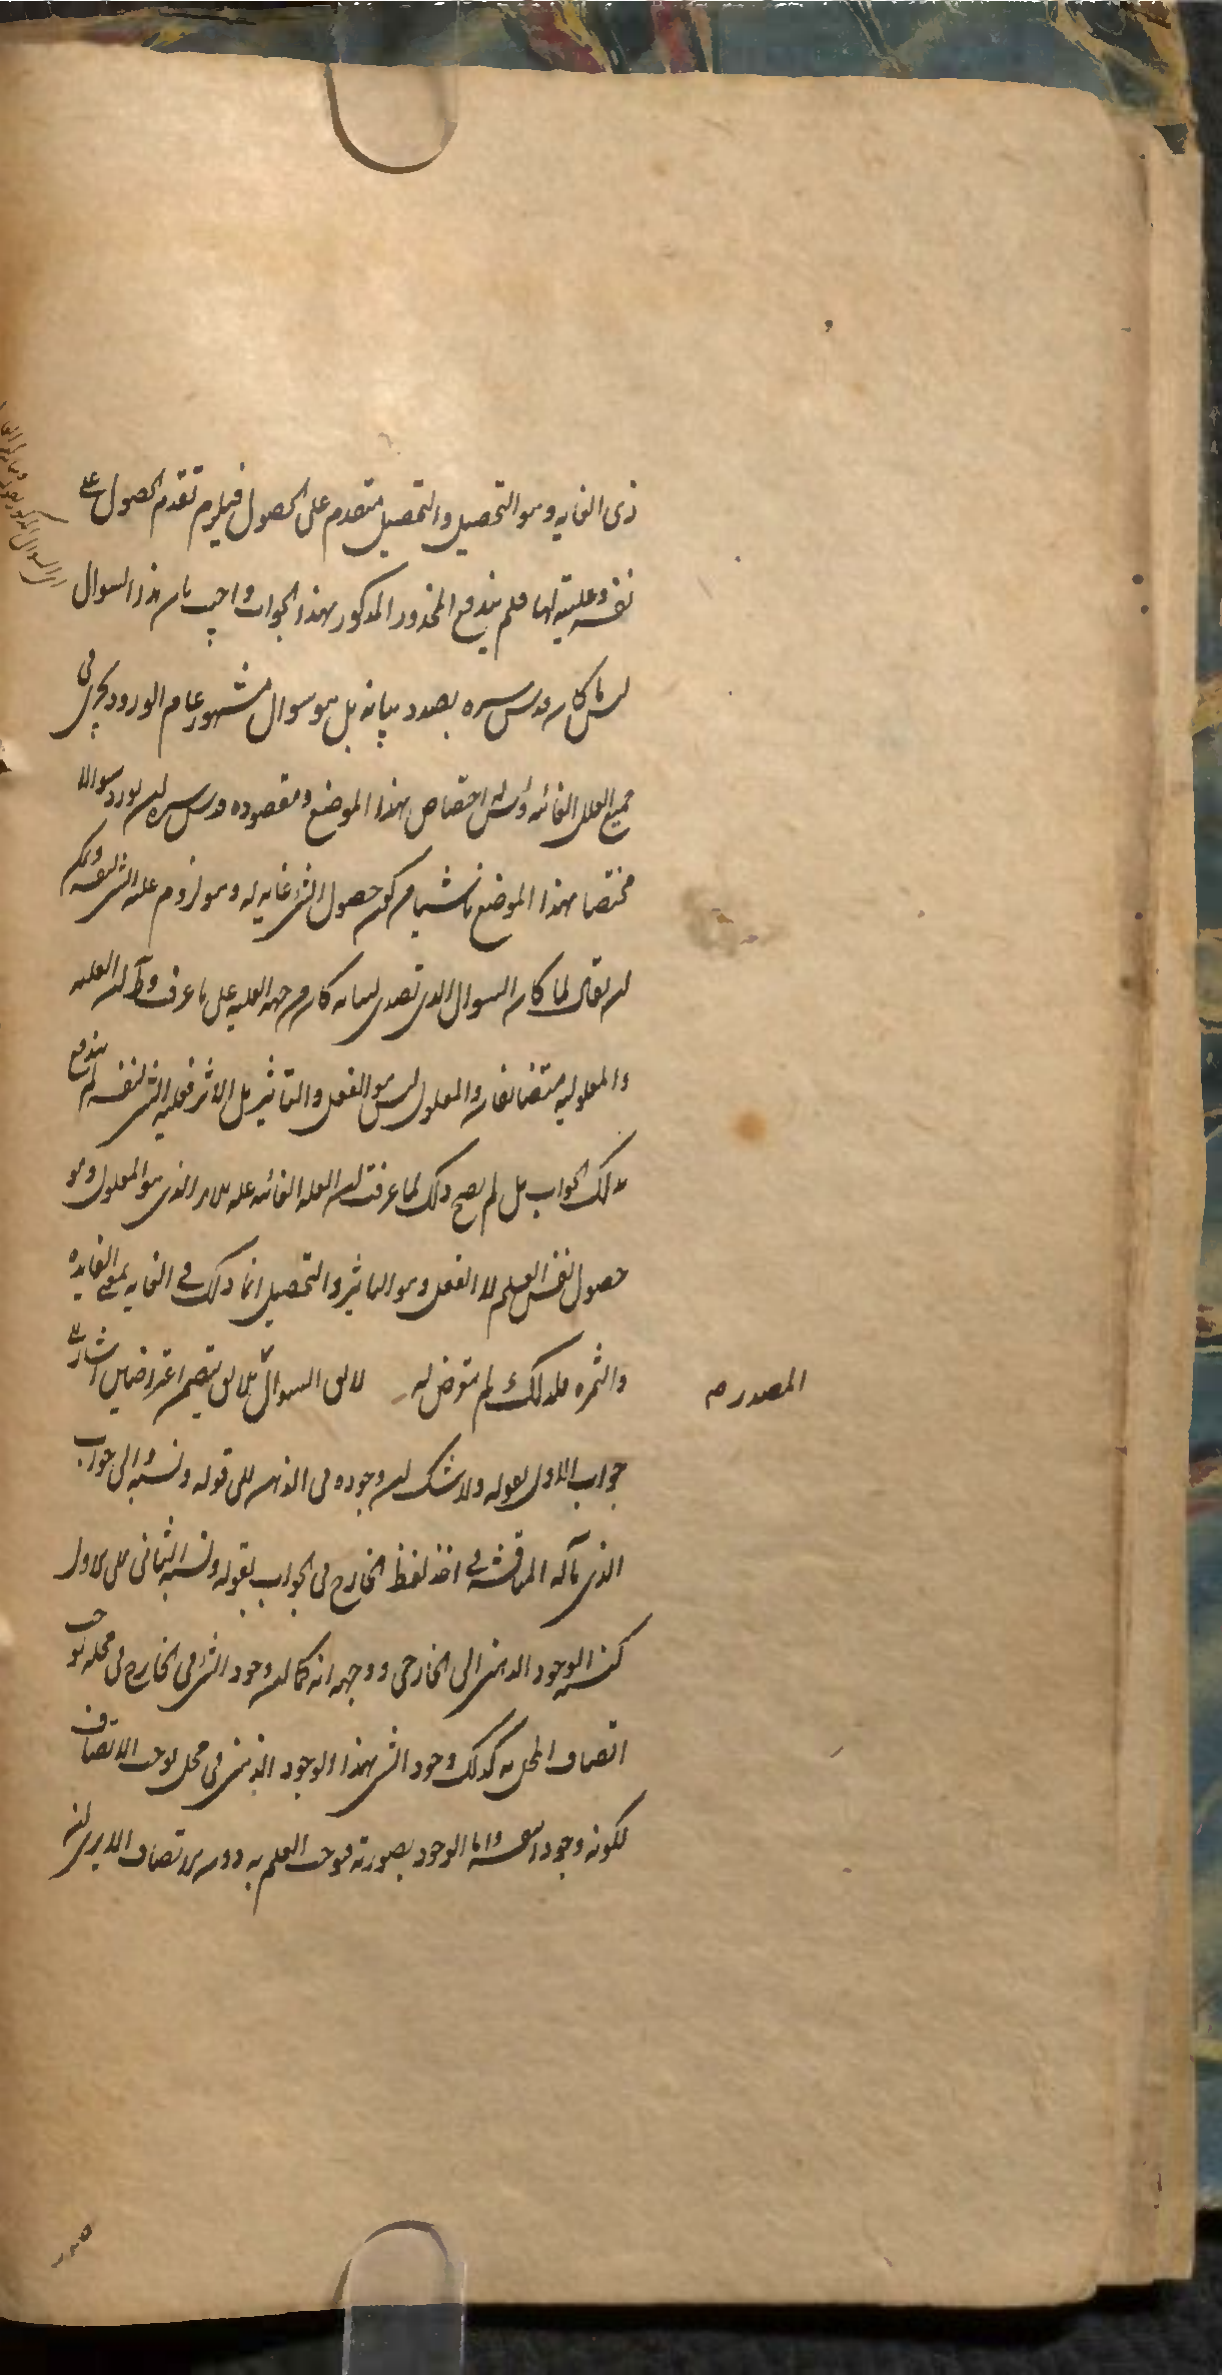 ذى الغايه وهو التحصيل والتحصيل متقدم على الحصول فيلزم تقدم الحصول على
نفسه وعليته لها فلم يندفع المحذور المذكور بهذا الجواب واجيب بان هذا السوال
ليس ما كان قدس سره بصدد بيانه بل هو سوال مشهور عام الورود يجرى فى
جميع العلل الغائيه وليس له اختصاص بهذا الموضع ومقصوده قدس سره ان يورد سوالا
مختصا بهذا الموضع ناشيا من كون حصول الشئ غايه له وهو لزوم علية الشئ لنفسه ويمكن
ان يقال لما كان السوال الذى تصدى لبيانه كان من جهه العليه على ما عرفت وآل ان العليه
والمعلوليه متضايفان والمعلول ليس هو الفعل والتاثير بل الاثر فعليه الشئ لنفسه لم يندفع
بذلك الجواب بل لم يصح ذلك لما عرفت ان العله الغائيه عله للاثر الذى هو المعلول وهو
حصول نفس العلم لا الفعل وهو التاثير والتحصيل انما ذلك فى الغايه بمعنى الفايده
والثمره فلذلك لم يتعرض له لا يق السوال يتضمن اعتراضين اشار الى
المصدر
جواب الاول بقوله ولا شك ان وجوده فى الذهن الى قوله ونسبة والى جواب
الذى مآله المناقشه فى اخذ لفظ الخارج فى الجواب بقوله ونسبة الثانى الى الاول
كنسبة الوجود الذهنى الى الخارجى ووجهه انه كما ان وجود الشئ فى الخارج فى محله يوجب
اتصاف المحل به كذلك وجود الشئ بهذا الوجود الذهنى فى محل يوجب الاتصاف
لكونه وجودا بنفسه واما الوجود بصورته فيوجب العلم به دون الاتصاف الا يرى انه